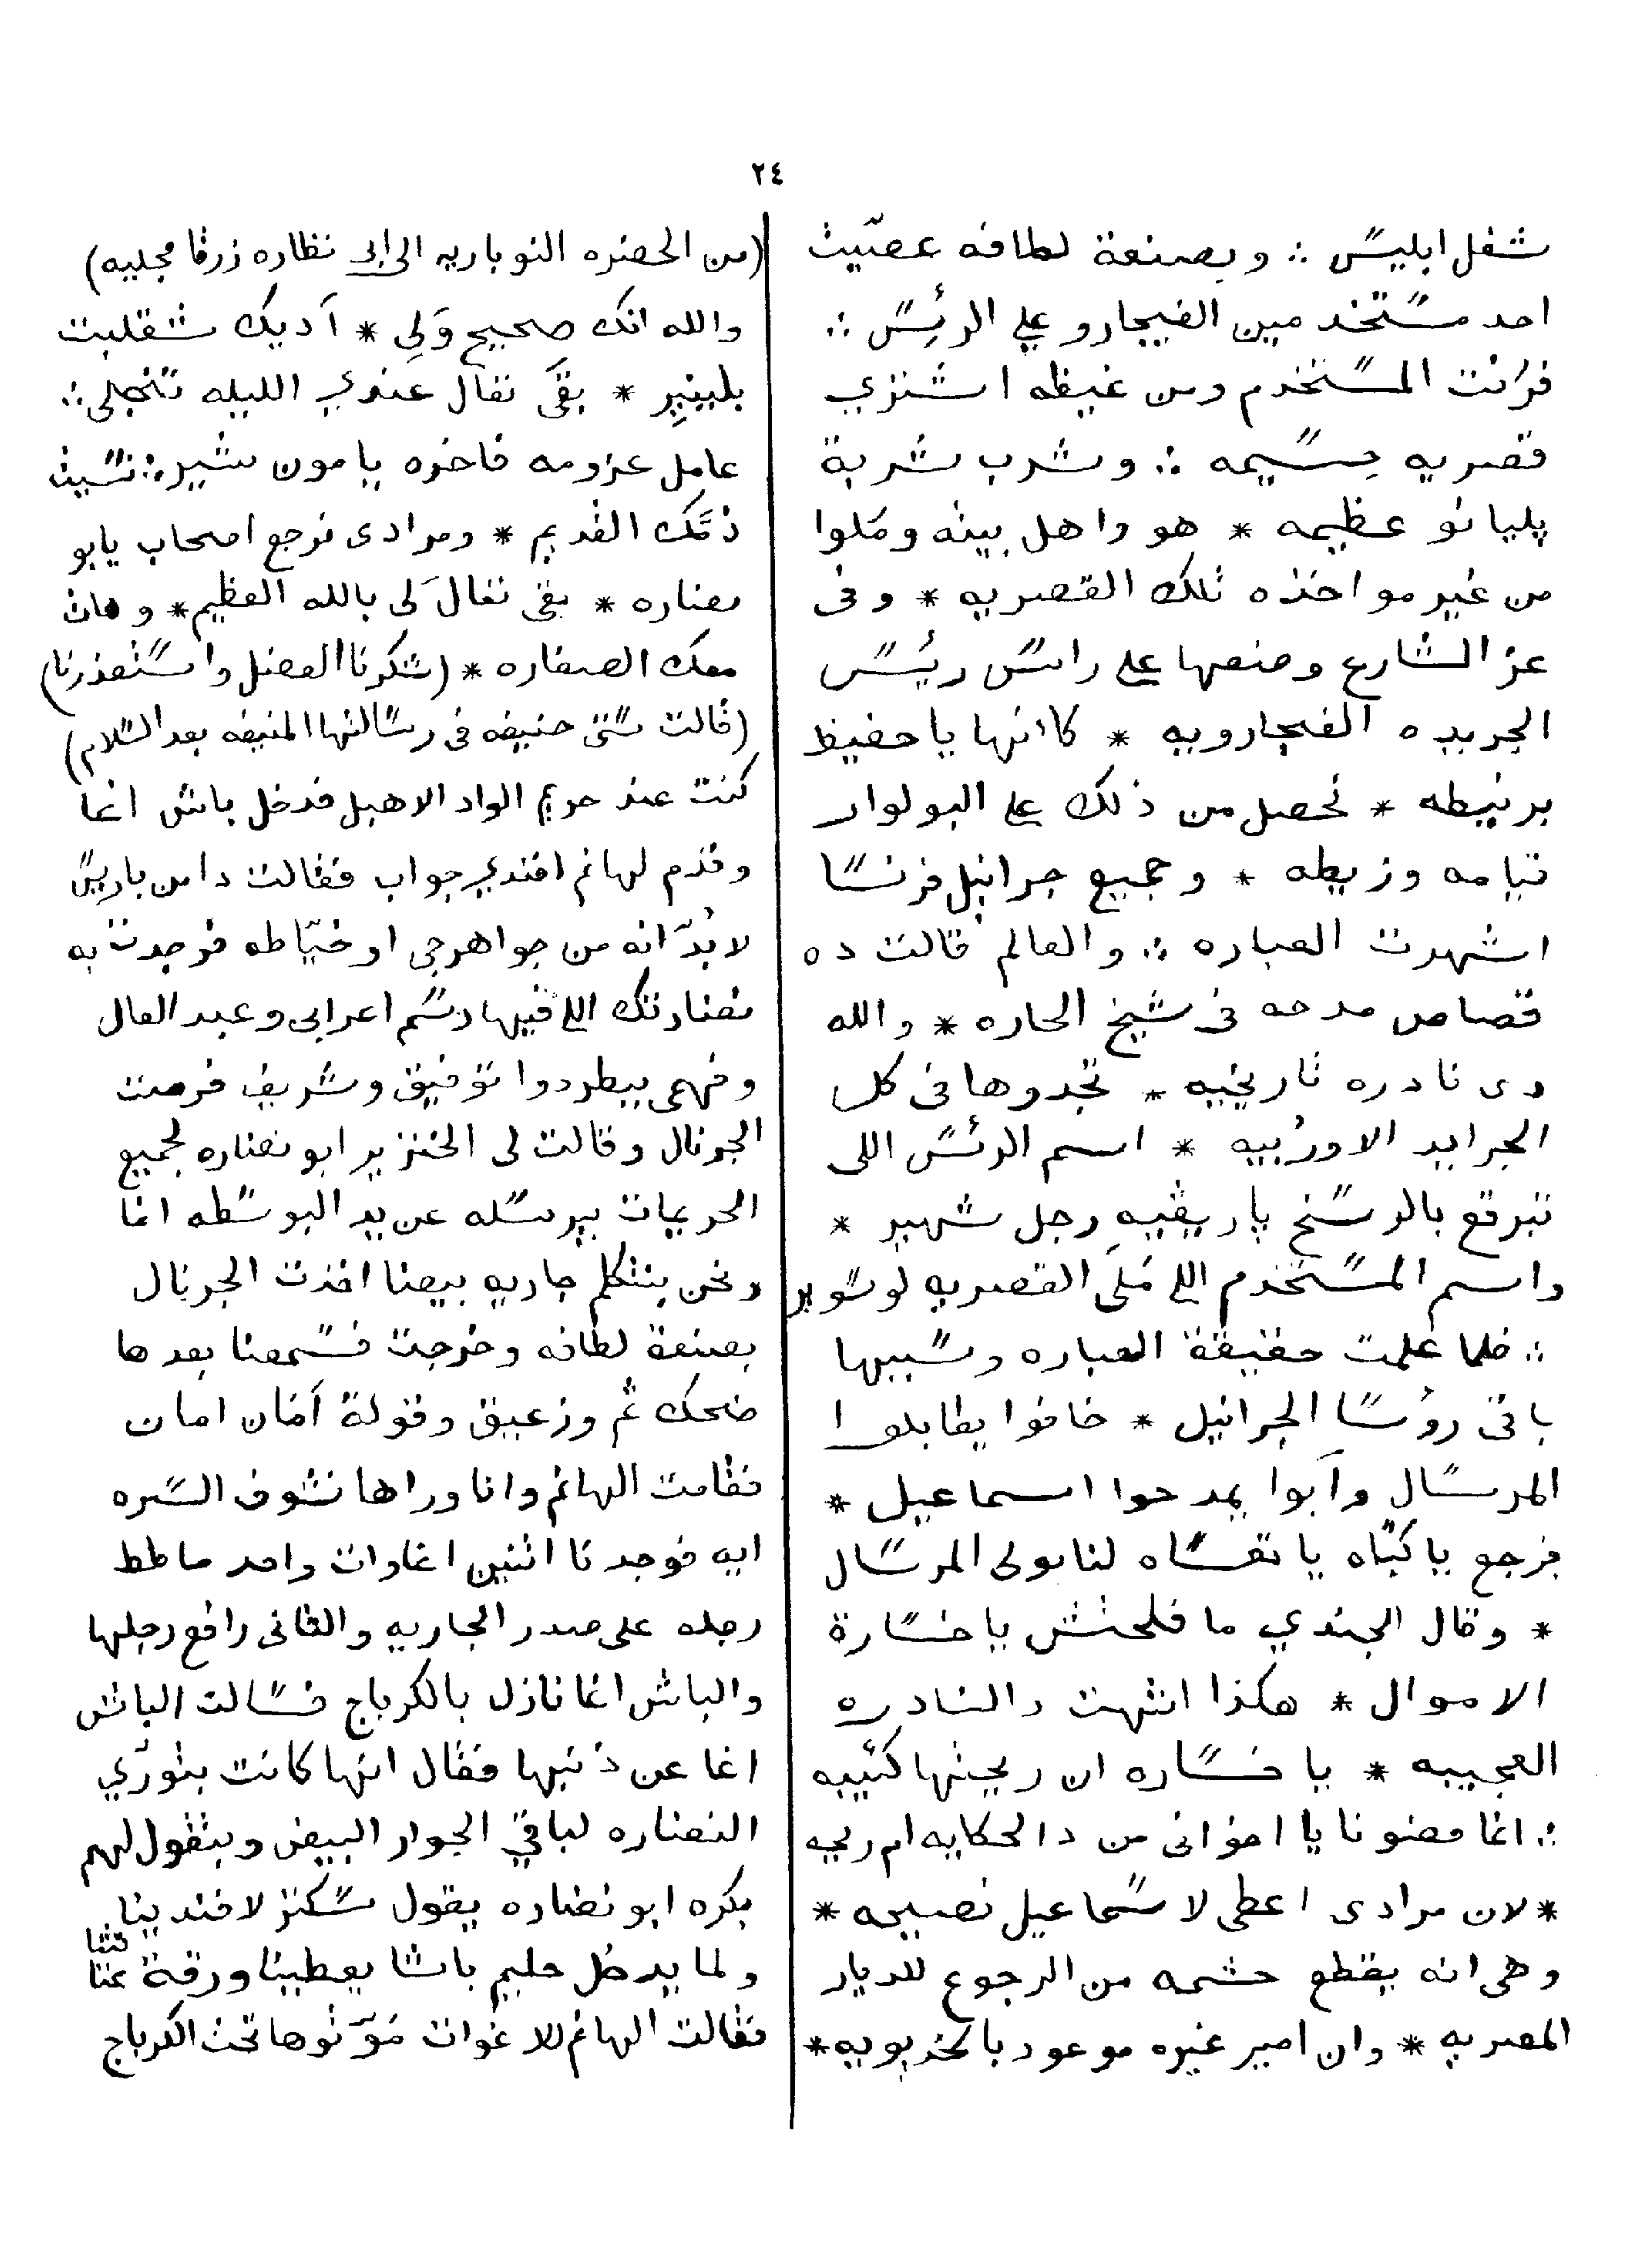 ٢٤
شغل ابليس ∴ وبصنعة لطافه عصّيت
احد مستخدمين الفيجارو على الرئيس ∴
فزانت المستخدم ومن غيظه اشتري
قصريه جسيمه ∴ وشرب شربة
پليانو عظيمه * هو واهل بيته وملوا
من غير مواخذه تلك القصريه * وفى
عز الشارع وضعها على راس ريس
الجريده الفيجارويه * كاانها ياحفيظ
برنيطه * تحصل من ذلك على البولوار
قيامه وزيطه * وجميع جرانيل فرنسا
اشهرت العباره ∴ والعالم قالت ده
قصاص مدحه فى شيخ الحاره * والله
دى نادره تاريخيه * تجدوها فى كل
الجرايد الاوربيه * اسم الرئس اللى
تبرقع بالوسخ پاريڤيه رجل شهير *
واسم المستخدم اللي ملَى القصريه لوسوير
∴ فلما علمت حقيقة العباره وسببها
باقى روسا الجرانيل * خافوا يطابلوا
المرسال وابوا يمدحوا اسماعيل *
فرجع ياكبّاه ياتعساه لنابولى المرسال
* وقال الجندي ما فلحتش ياخسارة
الاموال * هكذا انتهت دالنادره
العجيبه * ياخساره ان ريحتها كئيبه
∴ انما معنونا يا اخوانى من دالحكايه ام ريحه
* لان مرادى اعطى لاسماعيل نصيحه *
وهى انه يقطع حشمه من الرجوع للديار
المصريه * وان امير غيره موعود بالخديويه *
(من الحضره النوباريه الى ابى نظاره زرقا مجليه)
والله انك صحيح وَلِى * اَديك شقلبت
بليينير * بقَى تعال عندي الليله تنجلى ∴
عامل عزومه فاخره يامون شير ∴ نسيت
ذمَّك القديم * ومرادى نرجع اصحاب يابو
نضاره * بقى تعالَ لى بالله العظيم * وهات
معك الصفاره * (شكرنا الفضل واستعذرنا)
(قالت ستى حنيفه فى رسالتها المنيفه بعد السلام)
كنت عند حريم الواد الاهبل فدخل باش اغا
وقدم لهانم افندي جواب فقالت دا من باريس
لابُدّ انه من جواهرجى او خيّاطه فوجدت به
نضارتك اللي فيها رسم اعرابى وعبد العال
وفهمى بيطردوا توفيق وشريف فرمت
الجرنال وقالت لى الخنزير ابو نضاره لجميع
الحريمات بيرسله عن يد البوسطه انما
ونحن بنتكلم جاريه بيضا اخذت الجرنال
بصنعة لطافه وخرجت فسمعنا بعدها
ضحك ثم وزعيق وقولة اَمان امان
فقامت الهانم وانا وراها نشوف السره
ايه فوجدنا اثنين اغاوات واحد حاطط
رجله على صدر الجاريه والثانى رافع رجليها
والباش اغا نازل بالكرباج فسالت الباش
اغا عن ذنبها فقال انها كانت بتورّي
النضاره لباقي الجوار البيض وبتقول لهم
بكره ابو نضاره يقول سكتز لافندينا
ولما يدخل حليم باشا يعطينا ورقة عتقنا
فقالت الهانم للاغوات مَوّتوها تحت الكرباج